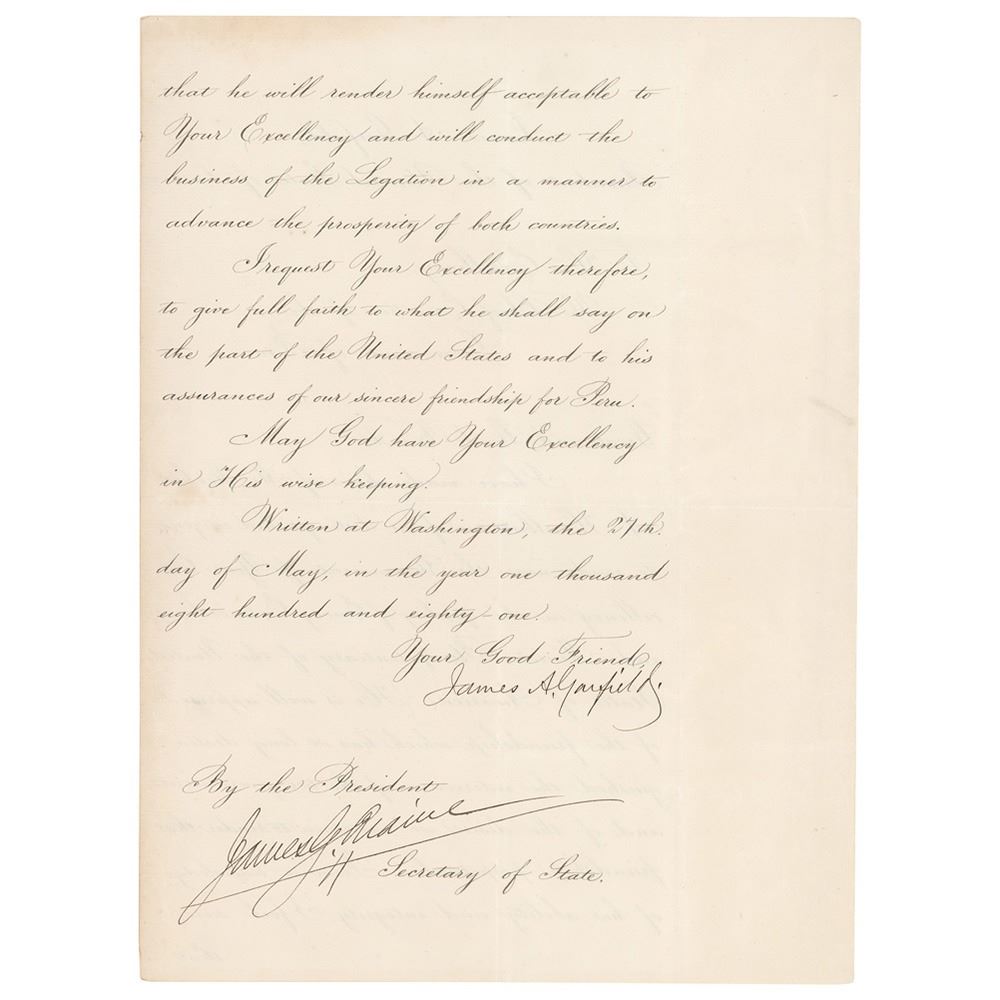 that he will render himself acceptable to
Your Excellency and will conduct the
business of the Legation in a manner to
advance the prosperity of both countries.
I request Your Excellency therefore,
to give full faith to what he shall say on
the part of the United States and to his
assurances of our sincere friendship for Peru.
May God have Your Excellency
in His wise keeping.
Written at Washington, the 27th.
day of May, in the year one thousand
eight hundred and eighty-one.
Your Good Friend,
James A. Garfield
By the President
James G. Blaine
Secretary of State.